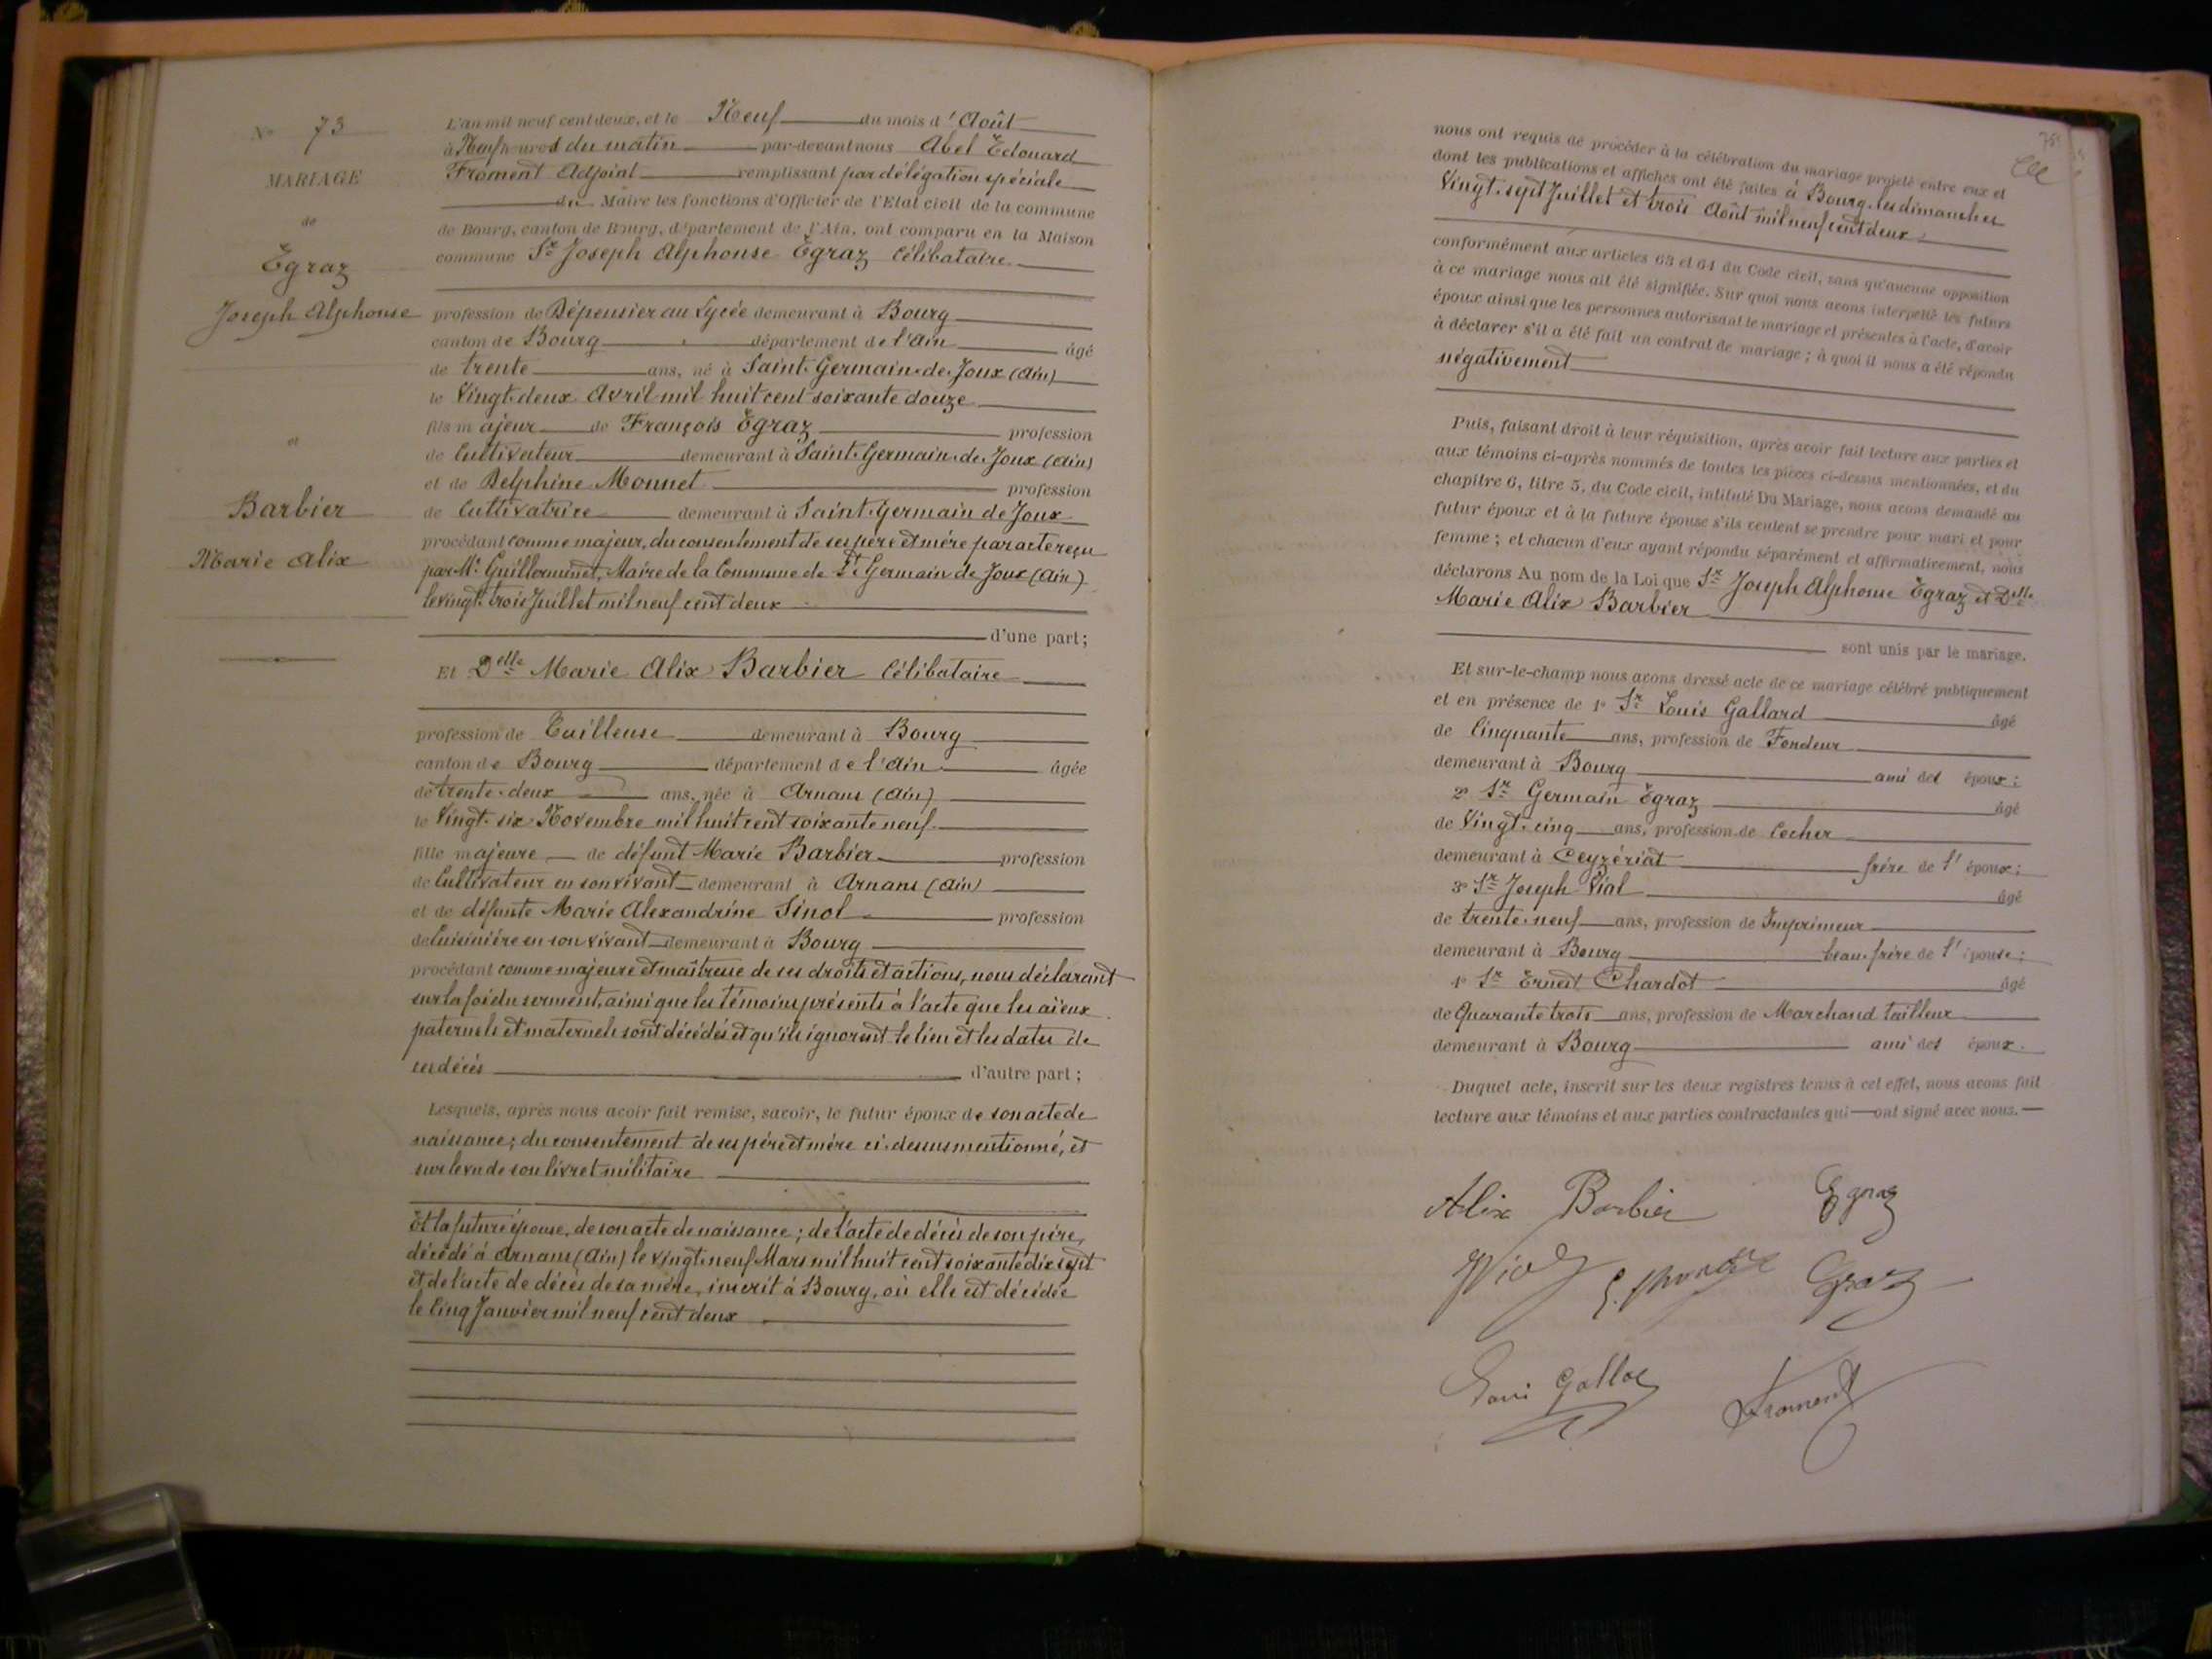 No 73
MARIAGE
de
Egraz
Joseph Alphonse
et
Barbier
Marie Alix
L'an mil neuf cent deux, et le Neuf du mois d'Août
à Neuf heures du matin par-devant nous Abel Edouard
Froment Adjoint remplissant par délégation spéciale
du Maire les fonctions d'Officier de l'Etat civil de la commune
de Bourg, canton de Bourg, département de l'Ain, ont comparu en la Maison
commune Sr Joseph Alphonse Egraz Célibataire
profession de Dépensier au Lycée demeurant à Bourg
canton de Bourg département de l'Ain âgé
de trente ans, né à Saint-Germain-de-Joux (Ain)
le Vingt-deux Avril mil huit cent soixante douze
fils majeur de François Egraz profession
de Cultivateur demeurant à Saint-Germain-de-Joux (Ain)
et de Delphine Monnet profession
de Cultivatrice demeurant à Saint-Germain de Joux
procédant comme majeur, du consentement de ses père et mère par acte reçu
par Mr Guillermmet, Maire de la Commune de St Germain de Joux (Ain)
le vingt-trois Juillet mil neuf cent deux
d'une part;
Et Delle Marie Alix Barbier Célibataire
profession de Tailleuse demeurant à Bourg
canton de Bourg département de l'Ain âgée
de trente-deux ans, née à Arnans (Ain)
le Vingt-six Novembre mil huit cent soixante neuf
fille majeure de défunt Marie Barbier profession
de Cultivateur en son vivant demeurant à Arnans (Ain)
et de défunte Marie Alexandrine Sinol profession
de Cuisinière en son vivant demeurant à Bourg
procédant comme majeure et maîtresse de ses droits et actions, nous déclarant
sur la foi du serment, ainsi que les témoins présents à l'acte que les aïeux
paternels et maternels sont décédés et qu'ils ignorent le lieu et les dates de
ces décès d'autre part;
Lesquels, après nous avoir fait remise, savoir, le futur époux de son acte de
naissance; du consentement de ses père et mère ci-dessus mentionné, et
sur le vu de son livret militaire
Et la future épouse, de son acte de naissance; de l'acte de décès de son père,
décédé à Arnans (Ain) le vingt-neuf Mars mil huit cent soixante dix sept
et de l'acte de décès de sa mère, inscrit à Bourg, où elle est décédée
le Cinq Janvier mil neuf cent deux
75
nous ont requis de procéder à la célébration du mariage projeté entre eux et
dont les publications et affiches ont été faites à Bourg, les dimanches
Vingt-sept Juillet et trois Août mil neuf cent deux
conformément aux articles 63 et 64 du Code civil, sans qu'aucune opposition
à ce mariage nous ait été signifiée. Sur quoi nous avons interpellé les futurs
époux ainsi que les personnes autorisant le mariage et présentes à l'acte, d'avoir
à déclarer s'il a été fait un contrat de mariage; à quoi il nous a été répondu
négativement
Puis, faisant droit à leur réquisition, après avoir fait lecture aux parties et
aux témoins ci-après nommés de toutes les pièces ci-dessus mentionnées, et du
chapitre 6, titre 5, du Code civil, intitulé Du Mariage, nous avons demandé au
futur époux et à la future épouse s'ils veulent se prendre pour mari et pour
femme; et chacun d'eux ayant répondu séparément et affirmativement, nous
déclarons Au nom de la Loi que Sr Joseph Alphonse Egraz et Delle
Marie Alix Barbier
sont unis par le mariage.
Et sur-le-champ nous avons dressé acte de ce mariage célébré publiquement
et en présence de 1° Sr Louis Gallard âgé
de Cinquante ans, profession de Fondeur
demeurant à Bourg ami des époux;
2° Sr Germain Egraz âgé
de Vingt-cinq ans, profession de Cocher
demeurant à Ceyzériat frère de l'époux;
3° Sr Joseph Vial âgé
de trente-neuf ans, profession de Imprimeur
demeurant à Bourg beau-frère de l'épouse;
4° Sr Ernest Chardot âgé
de Quarante trois ans, profession de Marchand tailleur
demeurant à Bourg ami des époux.
Duquel acte, inscrit sur les deux registres tenus à cet effet, nous avons fait
lecture aux témoins et aux parties contractantes qui ont signé avec nous.
Alix Barbier Egraz
JVial Egraz
Froment